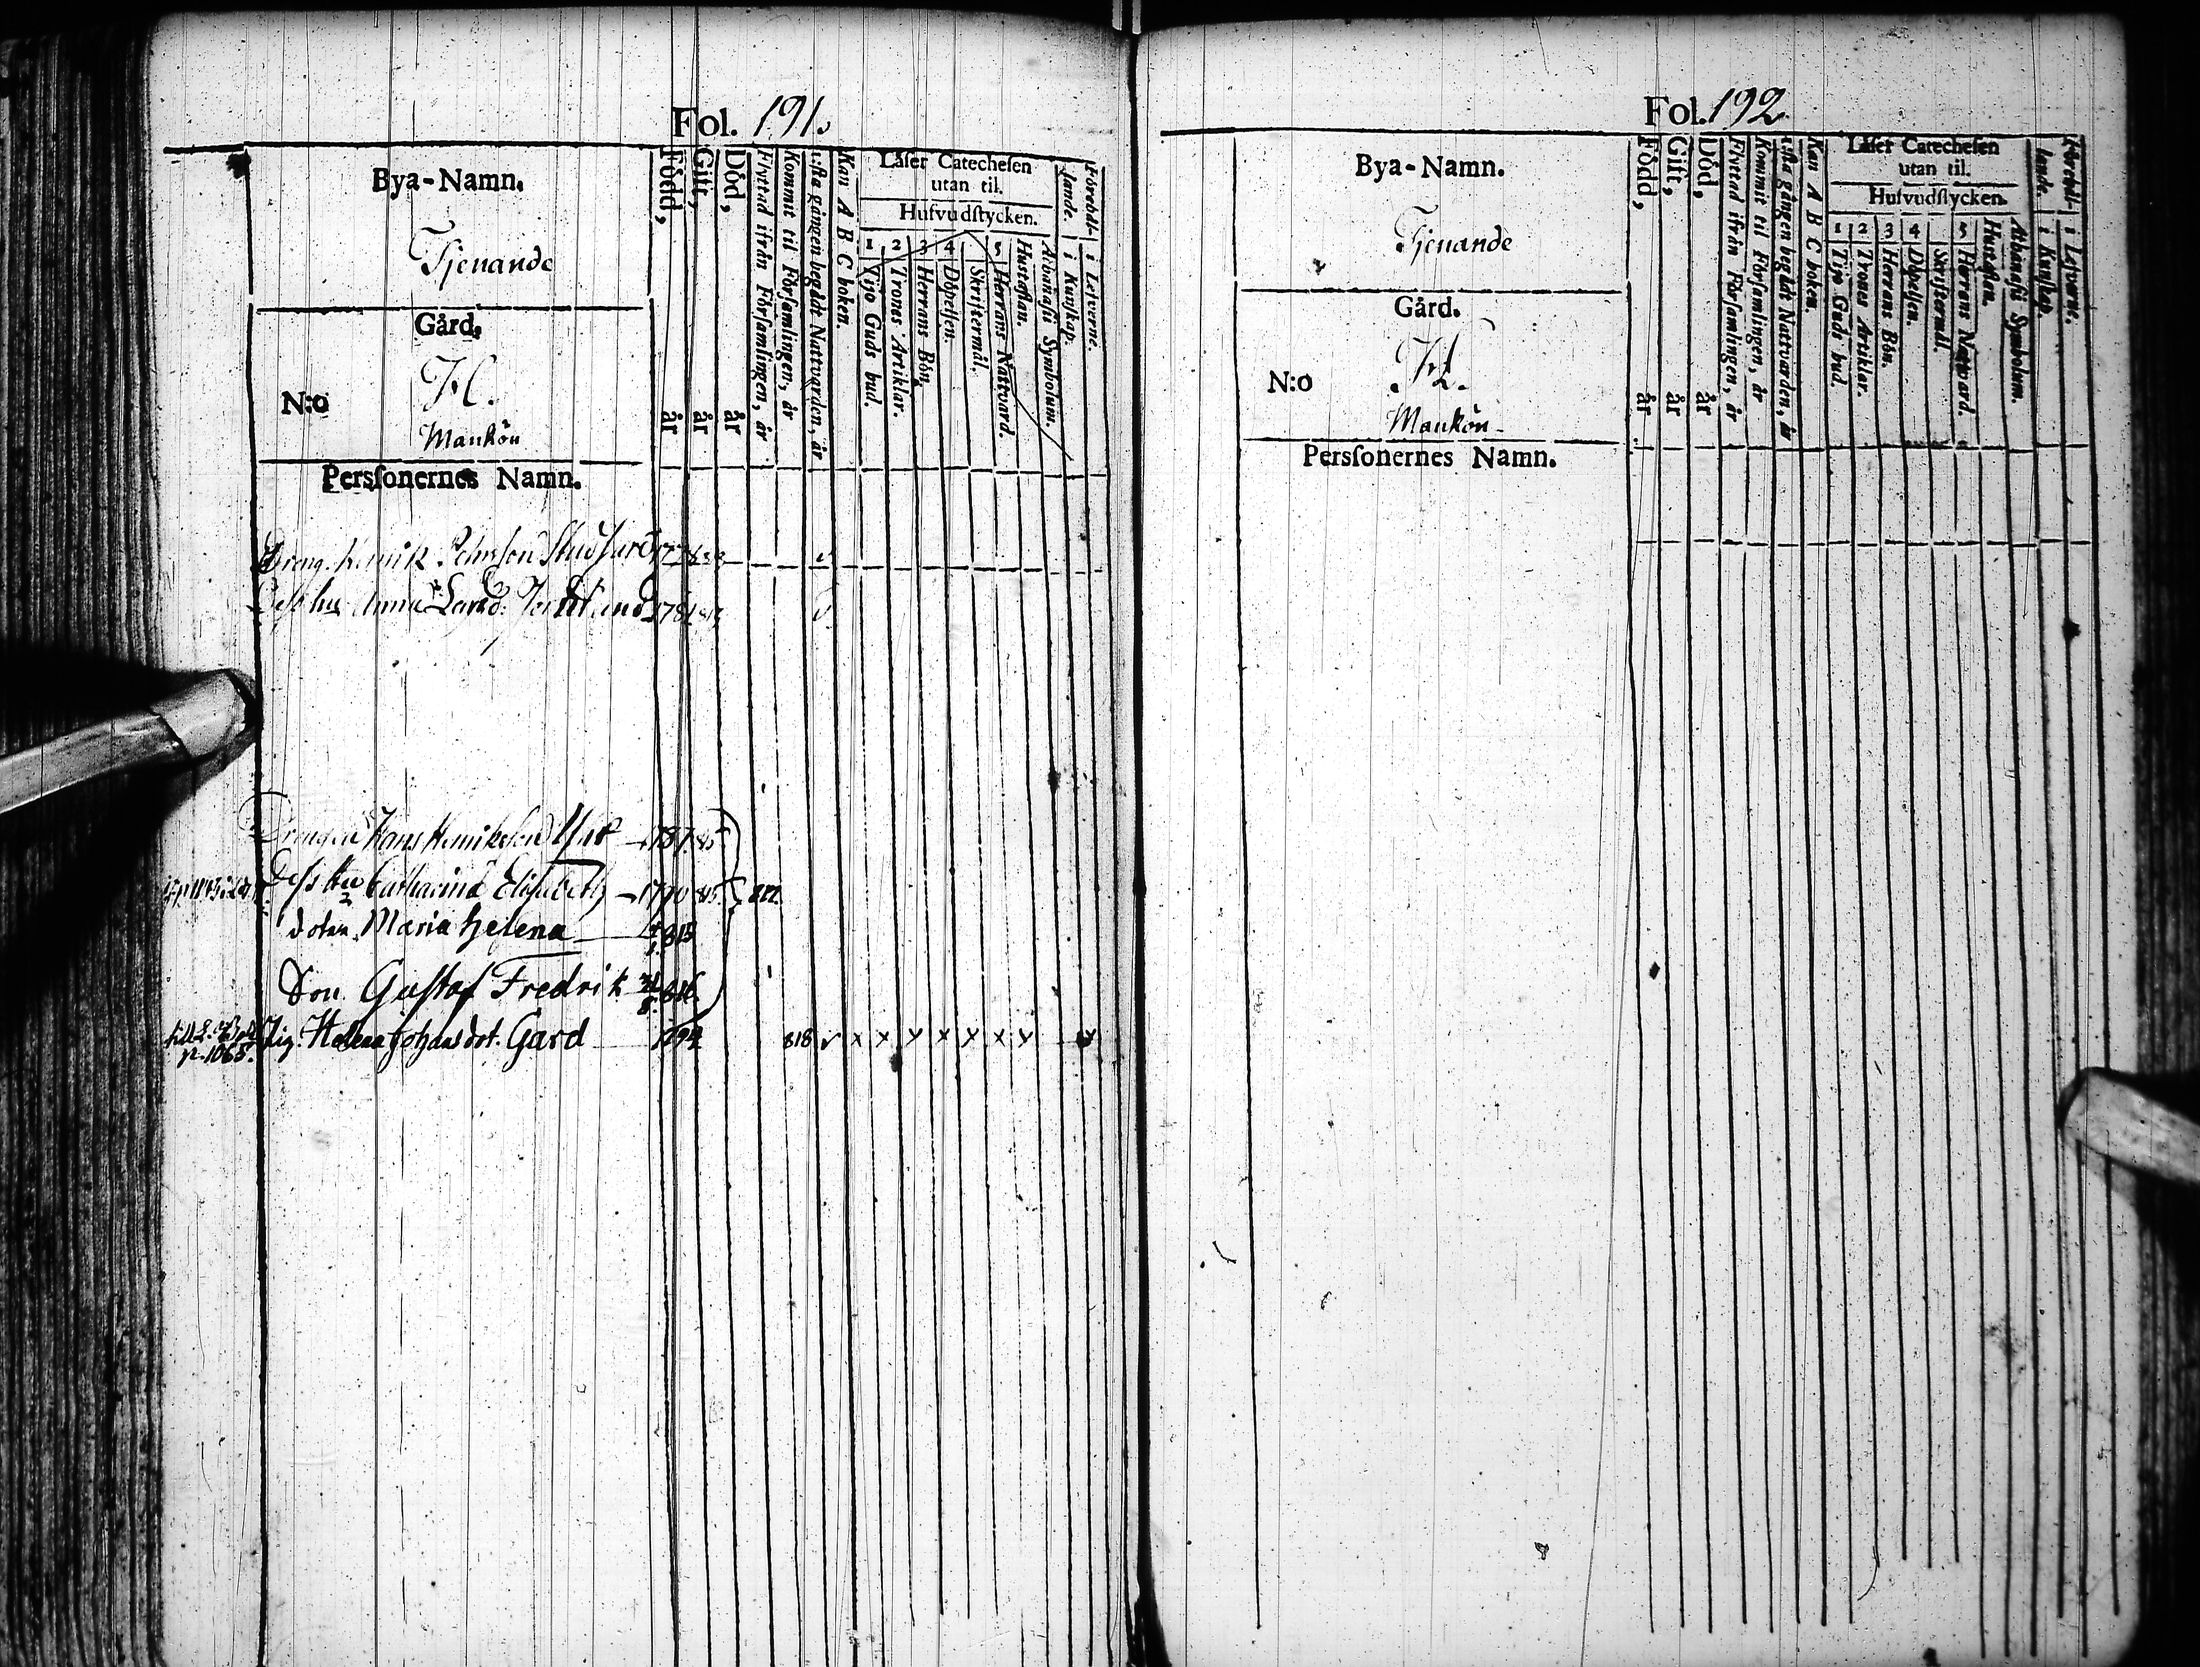 Fol. 191.
Bya-Namn.
Tjenande
Gård.
N:o
Mankön
Persſonernes Namn.
Född, år
Gift, år
Död, år
Flyttad ifrån Förſamlingen, år
Kommit til Förſamlingen, år
1:ſta gången begådt Nattvarden, år
Kan A B C boken.
Läſer Catecheſen
utan til.
Hufvudſtycken.
1 Tijo Guds bud.
2 Trones Artiklar.
3 Herrans Bön.
4 Döpelſen.
Skriftermål.
5 Herrans Nattvard.
Huſtaflan.
Athanaſii Symbolum.
Förehållande.
i Kunſkap.
i Lefverne.
Dreng. Henrik 1778
Anna 1781
Drengen Hans Henriksson 1787 815
Dess hu Catharina Elisabeth 1790 815 822
dotter Maria Helena 815
Son Gustaf Fredrik 816
p. 1065. Pig. Helena Johansdot. Gard 1794 818 v x x x x x x x
Fol. 192
Bya-Namn.
Tjenande
Gård.
N:o
Mankön
Persſonernes Namn.
Född, år
Gift, år
Död, år
Flyttad ifrån Förſamlingen, år
Kommit til Förſamlingen, år
1:ſta gången begådt Nattvarden, år
Kan A B C boken.
Läſer Catecheſen
utan til.
Hufvudſtycken.
1 Tijo Guds bud.
2 Trones Artiklar.
3 Herrans Bön.
4 Döpelſen.
Skriftermål.
5 Herrans Nattvard.
Huſtaflan.
Athanaſii Symbolum.
Förehållande.
i Kunſkap.
i Lefverne.